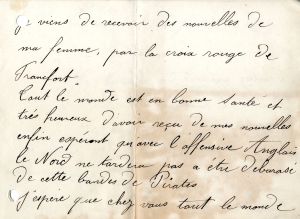 je viens de recevoir des nouvelles de
ma femme, par la croix rouge de
Francfort
Tout le monde est en bonne santé et
très heureux d'avoir reçu de mes nouvelles
enfin espéront qu'avec l'offensive Anglais
le Nord ne tardera pas a être debarasé
de cette bandes de Pirates
j'espere que chez vous tout le monde